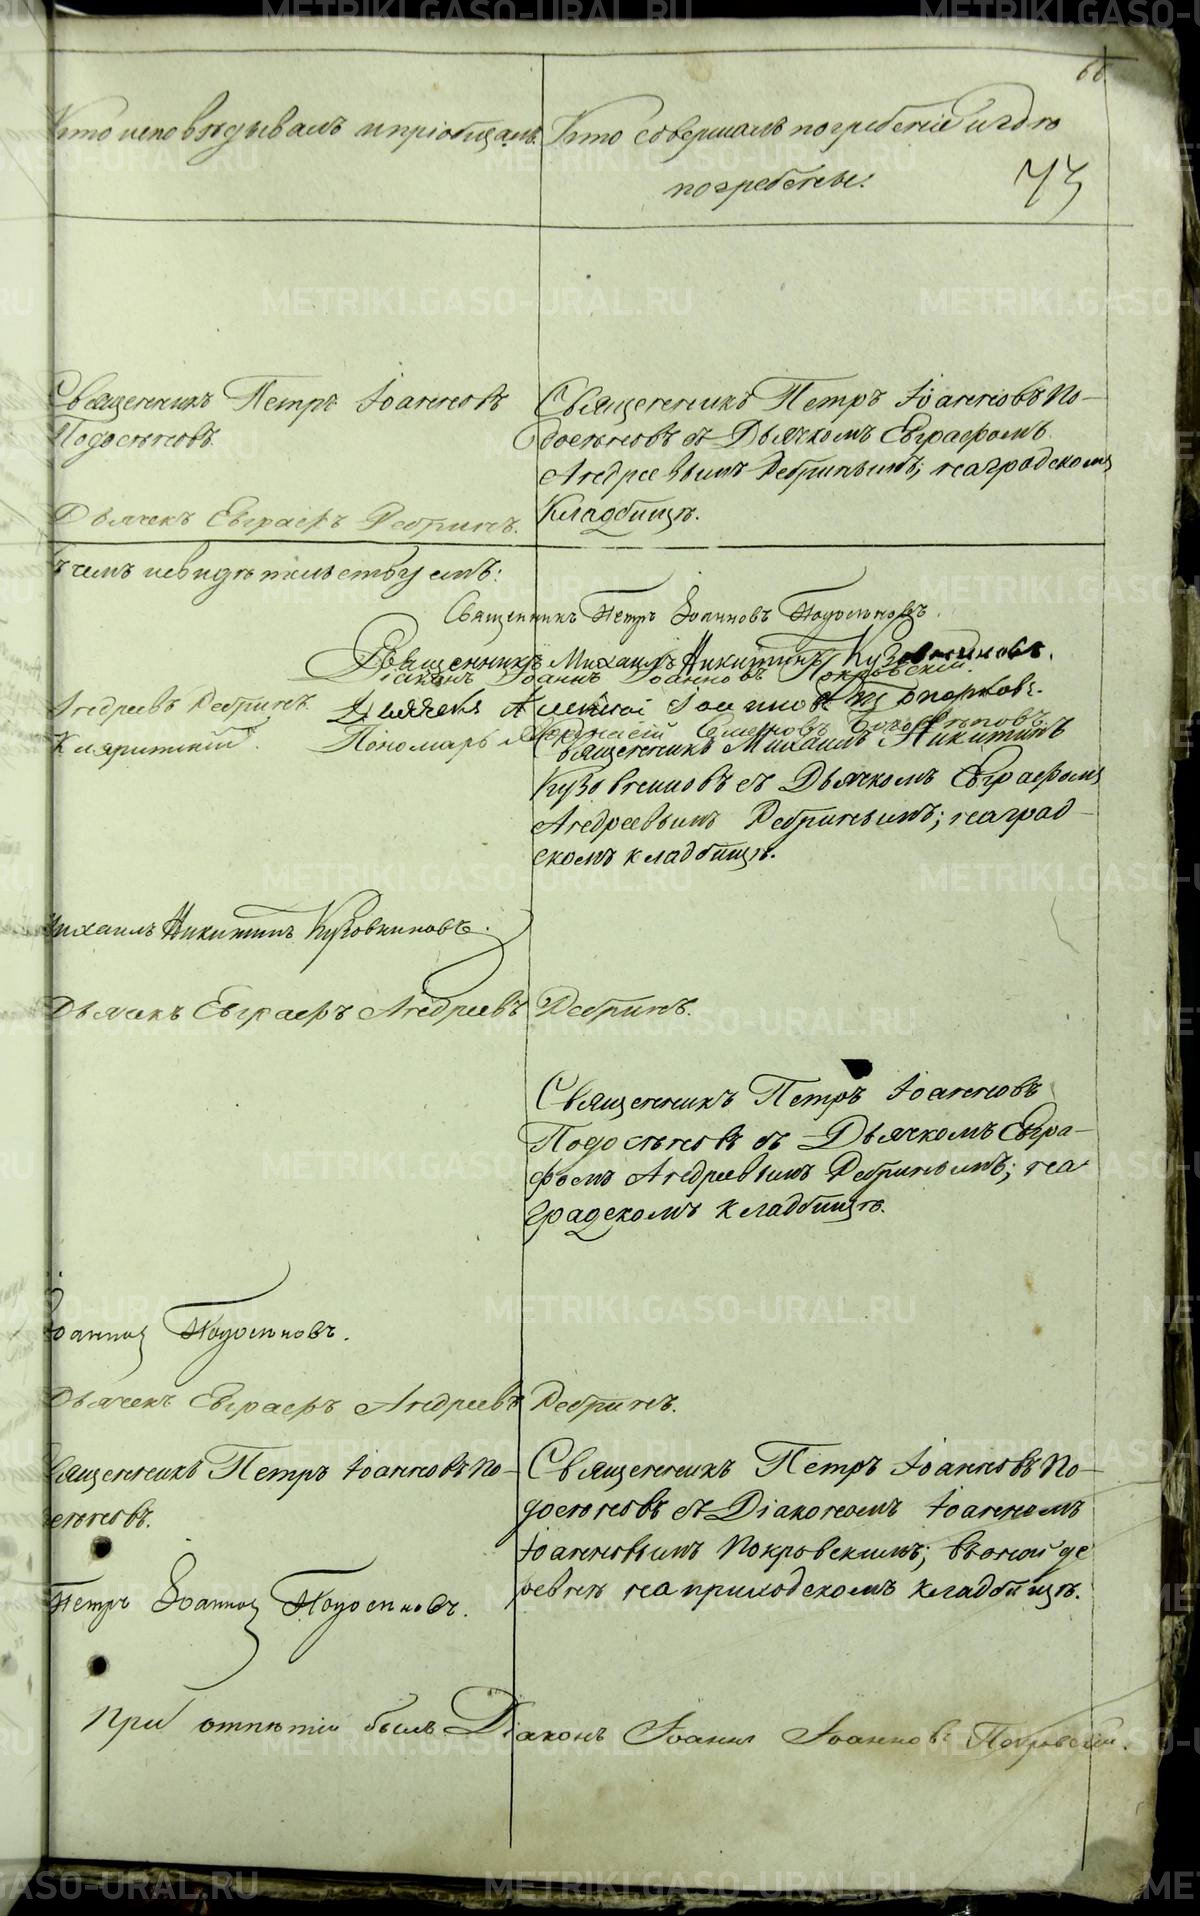 66
Кто исповѣдывалъ и пріобщалъ. Кто совершалъ погребеніе и гдѣ
погребены.
73
Священникъ Петръ Іоанновъ
Подосеновъ.
Дьячекъ Евграфъ Ребринъ.
Священникъ Петръ Іоанновъ По-
досеновъ съ Дьячкомъ Евграфомъ
Андреевымъ Ребринымъ; на градскомъ
кладбищѣ.
въ чемъ свидѣтельствуемъ:
Священникъ Петръ Іоанновъ Подосеновъ.
Священникъ Михаилъ Никитинъ Кузовниковъ.
Діаконъ Іоаннъ Іоанновъ Покровскій.
Андреевъ Ребринъ. Дьячекъ Алексей Іоанновъ
Пономарь Семеновъ
Священникъ Михаилъ Никитинъ
Кузовниковъ съ Дьячкомъ Евграфомъ
Андреевымъ Ребринымъ; на град-
скомъ кладбищѣ.
Михаилъ Никитинъ Кузовниковъ.
Дьячекъ Евграфъ Андреевъ Ребринъ.
Священникъ Петръ Іоанновъ
Подосеновъ съ Дьячкомъ Евгра-
фомъ Андреевымъ Ребринымъ; на
градскомъ кладбищѣ.
Іоанновъ Подосеновъ.
Дьячекъ Евграфъ Андреевъ Ребринъ.
Священникъ Петръ Іоанновъ По-
сеновъ.
Священникъ Петръ Іоанновъ По-
досеновъ съ Діакономъ Іоанномъ
Іоанновымъ Покровскимъ; въ оной де
ревнѣ на приходскомъ кладбищѣ.
Петръ Іоанновъ Подосеновъ.
При отпѣтіи былъ Діаконъ Іоаннъ Іоанновъ Покровскій.
METRIKI.GASO-URAL.RU